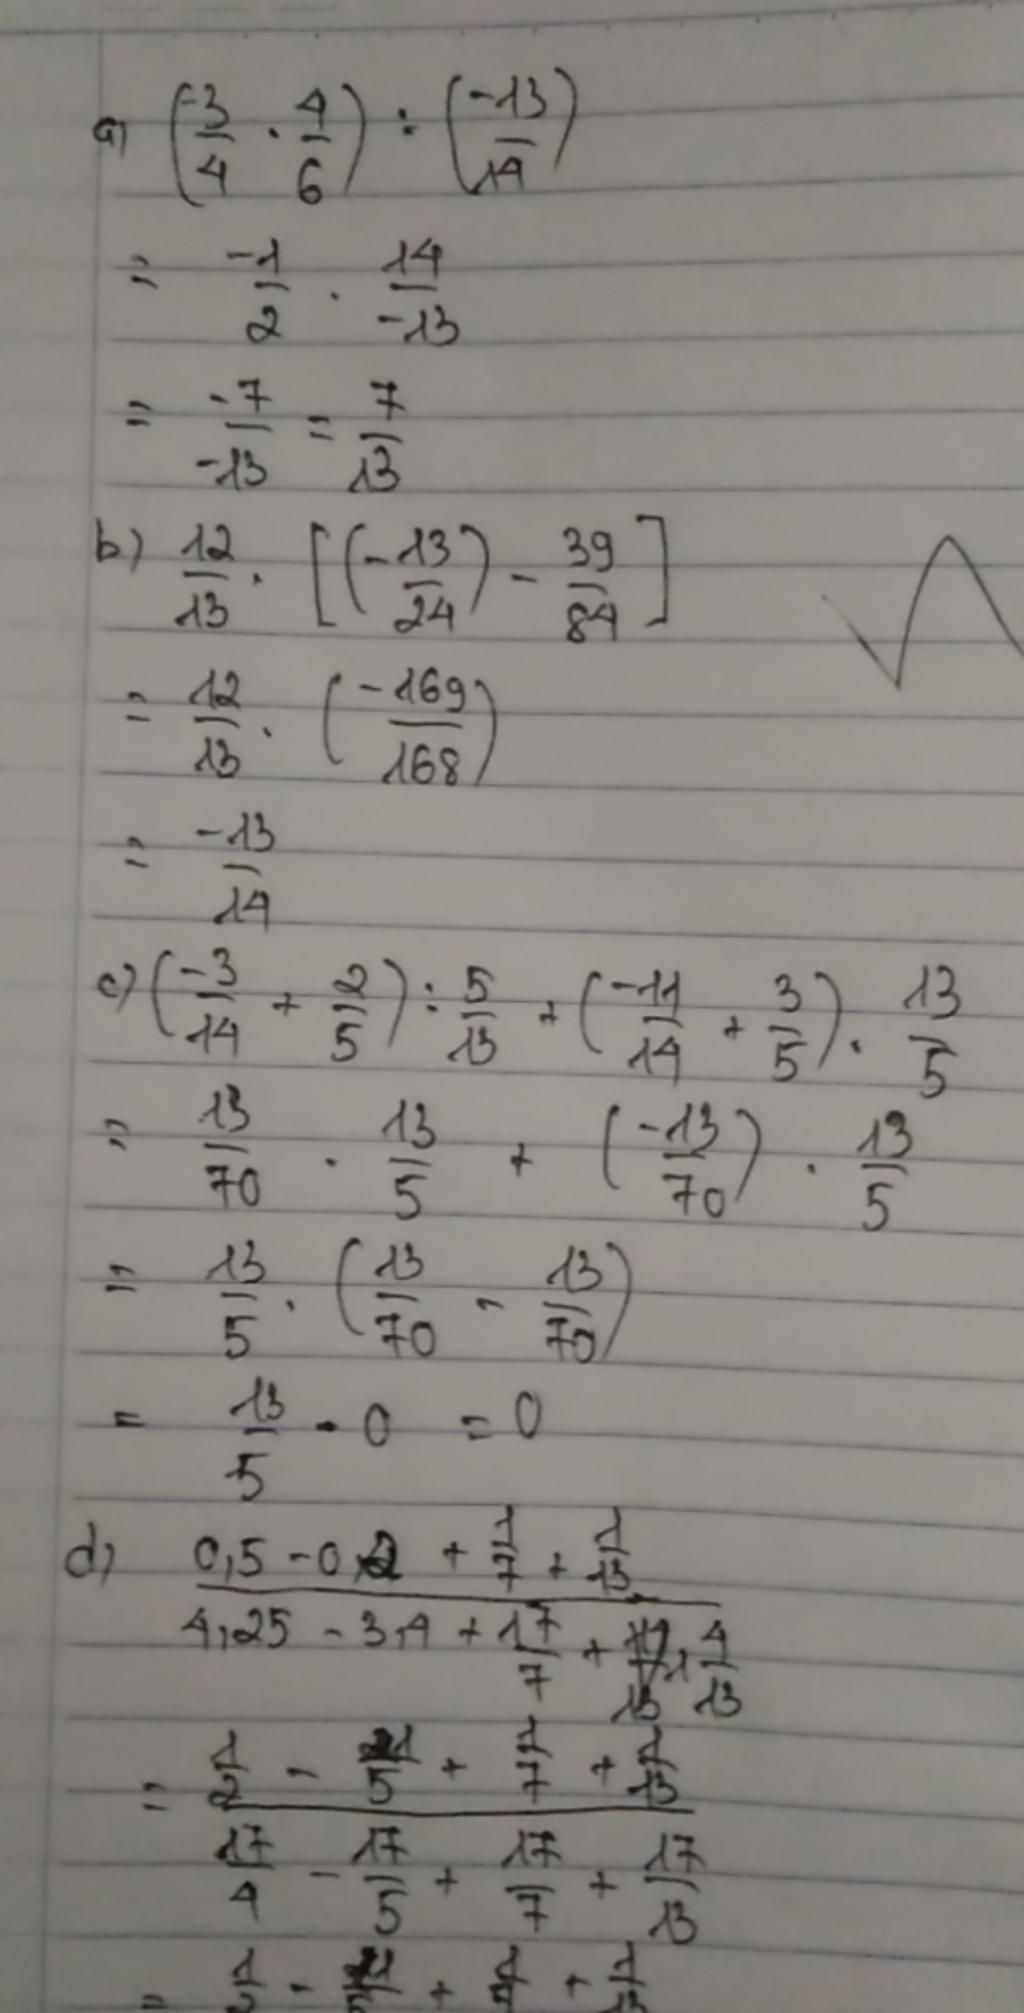 a) (-3/4 · 4/6) : (-13/14)
= -1/2 · 14/-13
= -7/-13 = 7/13
b) 12/13 · [(-13/24) - 39/84]
= 12/13 · (-169/168)
= -13/14
c) (-3/14 + 2/5) : 5/13 + (-11/14 + 3/5) · 13/5
= 13/70 · 13/5 + (-13/70) · 13/5
= 13/5 · (13/70 - 13/70)
= 13/5 · 0 = 0
d) (0,5 - 0,2 + 1/7 + 1/13) / (4,25 - 3,4 + 17/7 + 1 4/13)
= (1/2 - 1/5 + 1/7 + 1/13) / (17/4 - 17/5 + 17/7 + 17/13)